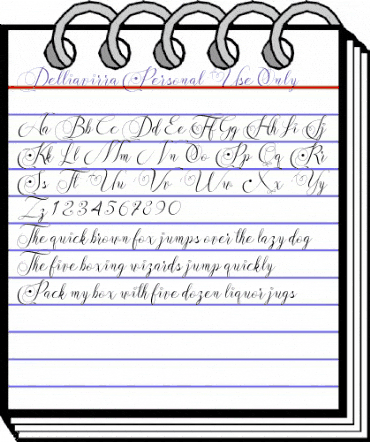 Delliavirra Personal Use Only
Aa Bb Cc Dd Ee Ff Gg Hh Ii Jj
Kk Ll Mm Nn Oo Pp Qq Rr
Ss Tt Uu Vv Ww Xx Yy
Zz 1 2 3 4 5 6 7 8 9 0
The quick brown fox jumps over the lazy dog
The five boxing wizards jump quickly
Pack my box with five dozen liquor jugs